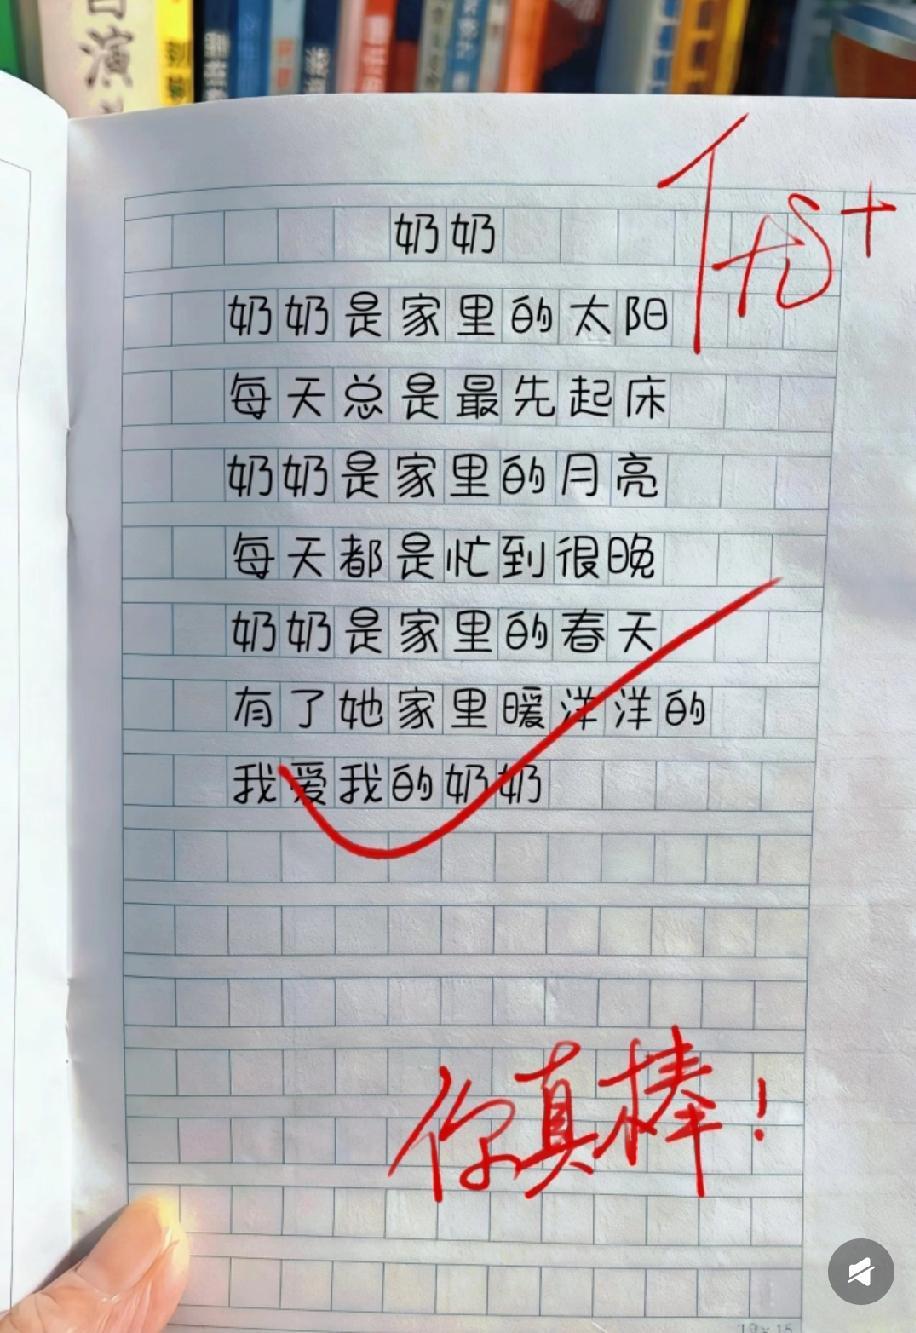 演
优+
奶奶
奶奶是家里的太阳
每天总是最先起床
奶奶是家里的月亮
每天都是忙到很晚
奶奶是家里的春天
有了她家里暖洋洋的
我爱我的奶奶
你真棒！